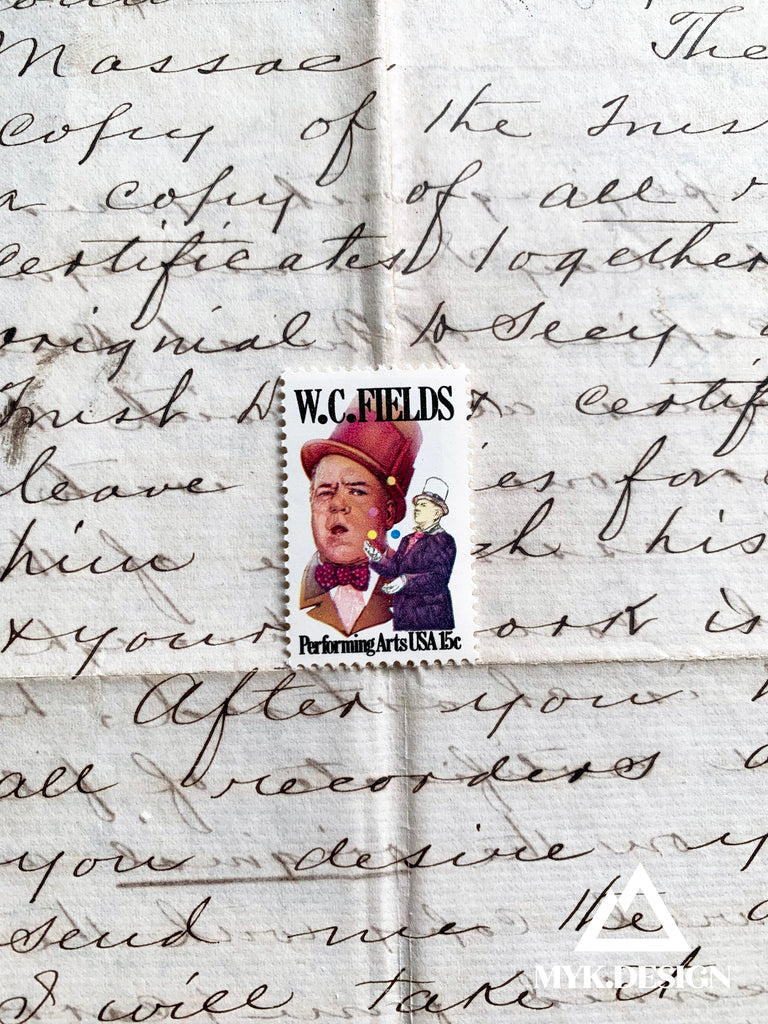 Massac. The
copy of the Trust
a copy of all
certificates together
orignial to Secy
Trust D
certif
leave
for
him
his
& your
ork is
W.C.FIELDS
Performing Arts USA 15c
After you
all recorders
you desire
send me the
I will take it
MYK.DESIGN